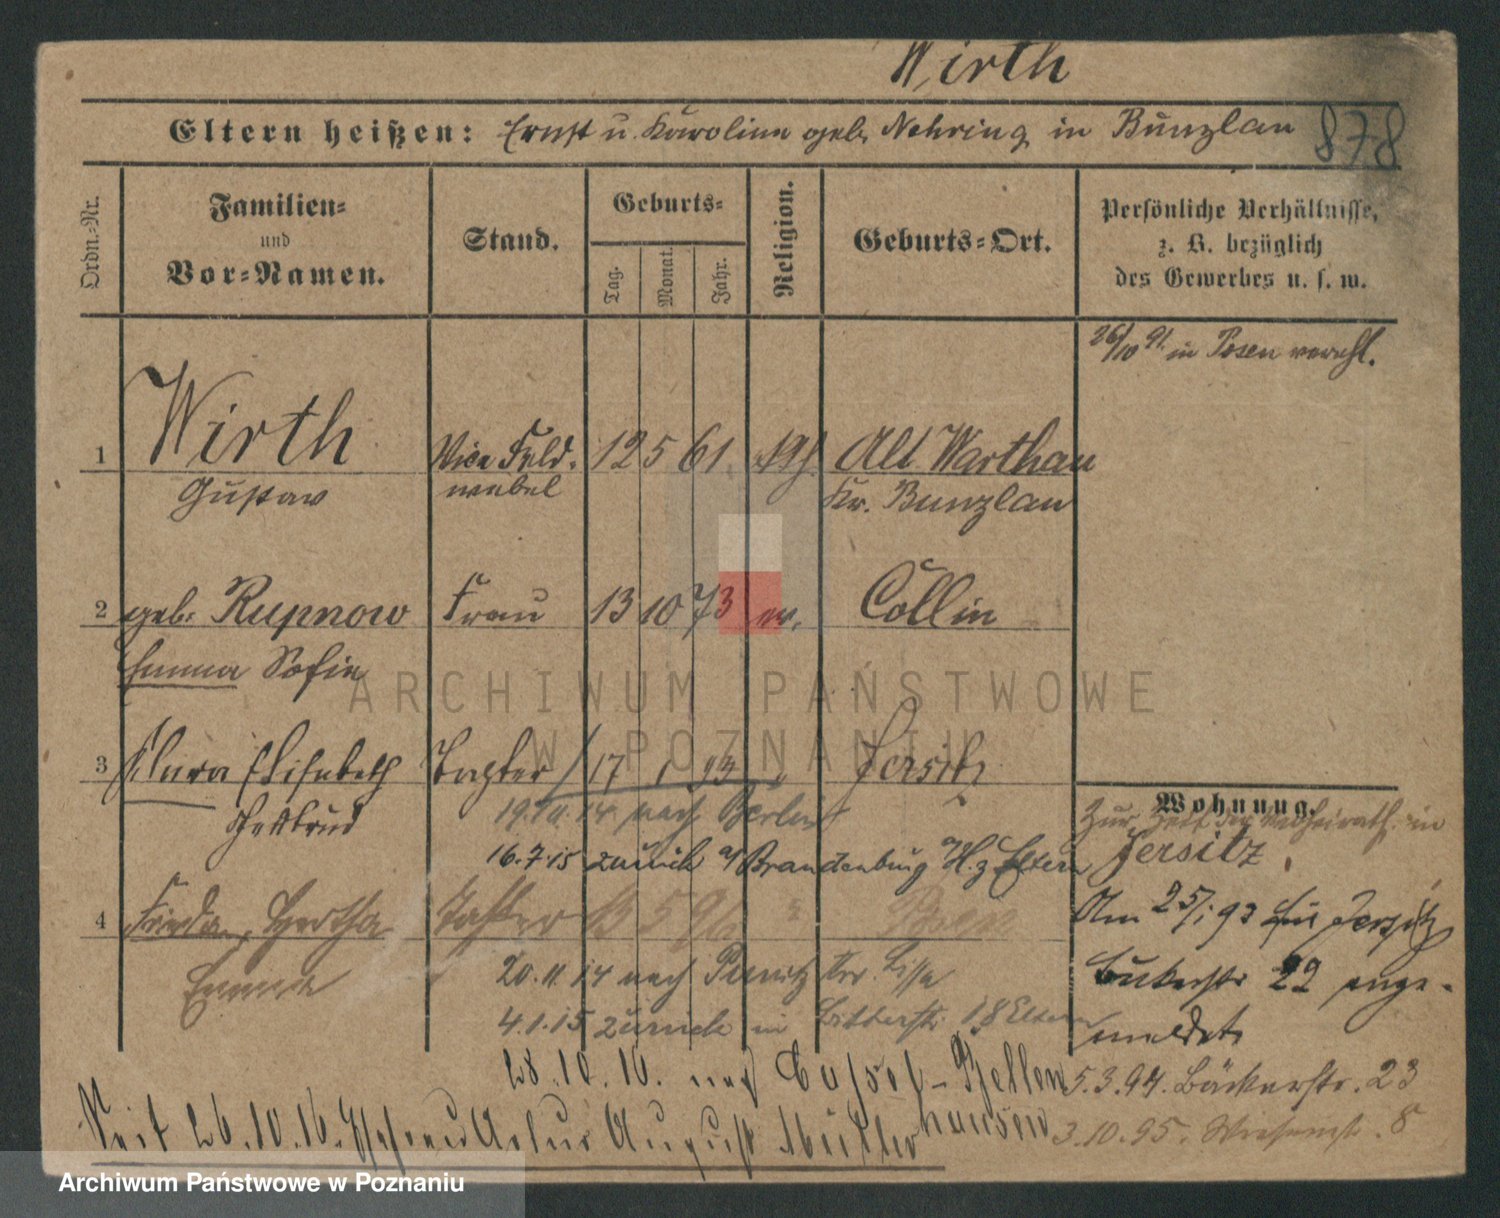 Wirth
Eltern heißen: Ernst u. Karoline geb. Nehring in Bunzlau 878
Ordn.-Nr.
Familien-
und
Vor-Namen.
Stand.
Geburts-
Tag.
Monat.
Jahr.
Religion.
Geburts-Ort.
Persönliche Verhältnisse,
z. B. bezüglich
des Gewerbes u. s. w.
26/10 91 in Posen verehl.
1 Wirth Vice Feld- 12 5 61 Alt Warthau
Gustav webel Kr. Bunzlau
2 geb. Rupnow Frau 13 10 73 ev. Collin
Emma Sofie
3 Klara Elisabeth Tochter 17 1 93 " Jersitz
Gertrud
19.10.14 nach Berlin
16.7.15 zurück Brandenburg z Eltern
4 Frieda, Hertha Tochter 13 5 Posen
20.11.14 nach Punitz Kr. Lissa
4.1.15 zurück in 18 Eltern
Wohnung.
Zur Zeit der Verheirath. in
Jersitz
Am 25/1 93 für Jersitz
Bukerstr 22 ange-
meldet
5.3.94. Bäckerstr. 23
3.10.95. Wiesenstr. 8
28.10.16. nach Cassel-
hausen
Seit 26.10.16. Ehefrau Artur August Müller
ARCHIWUM PAŃSTWOWE
W POZNANIU
Archiwum Państwowe w Poznaniu